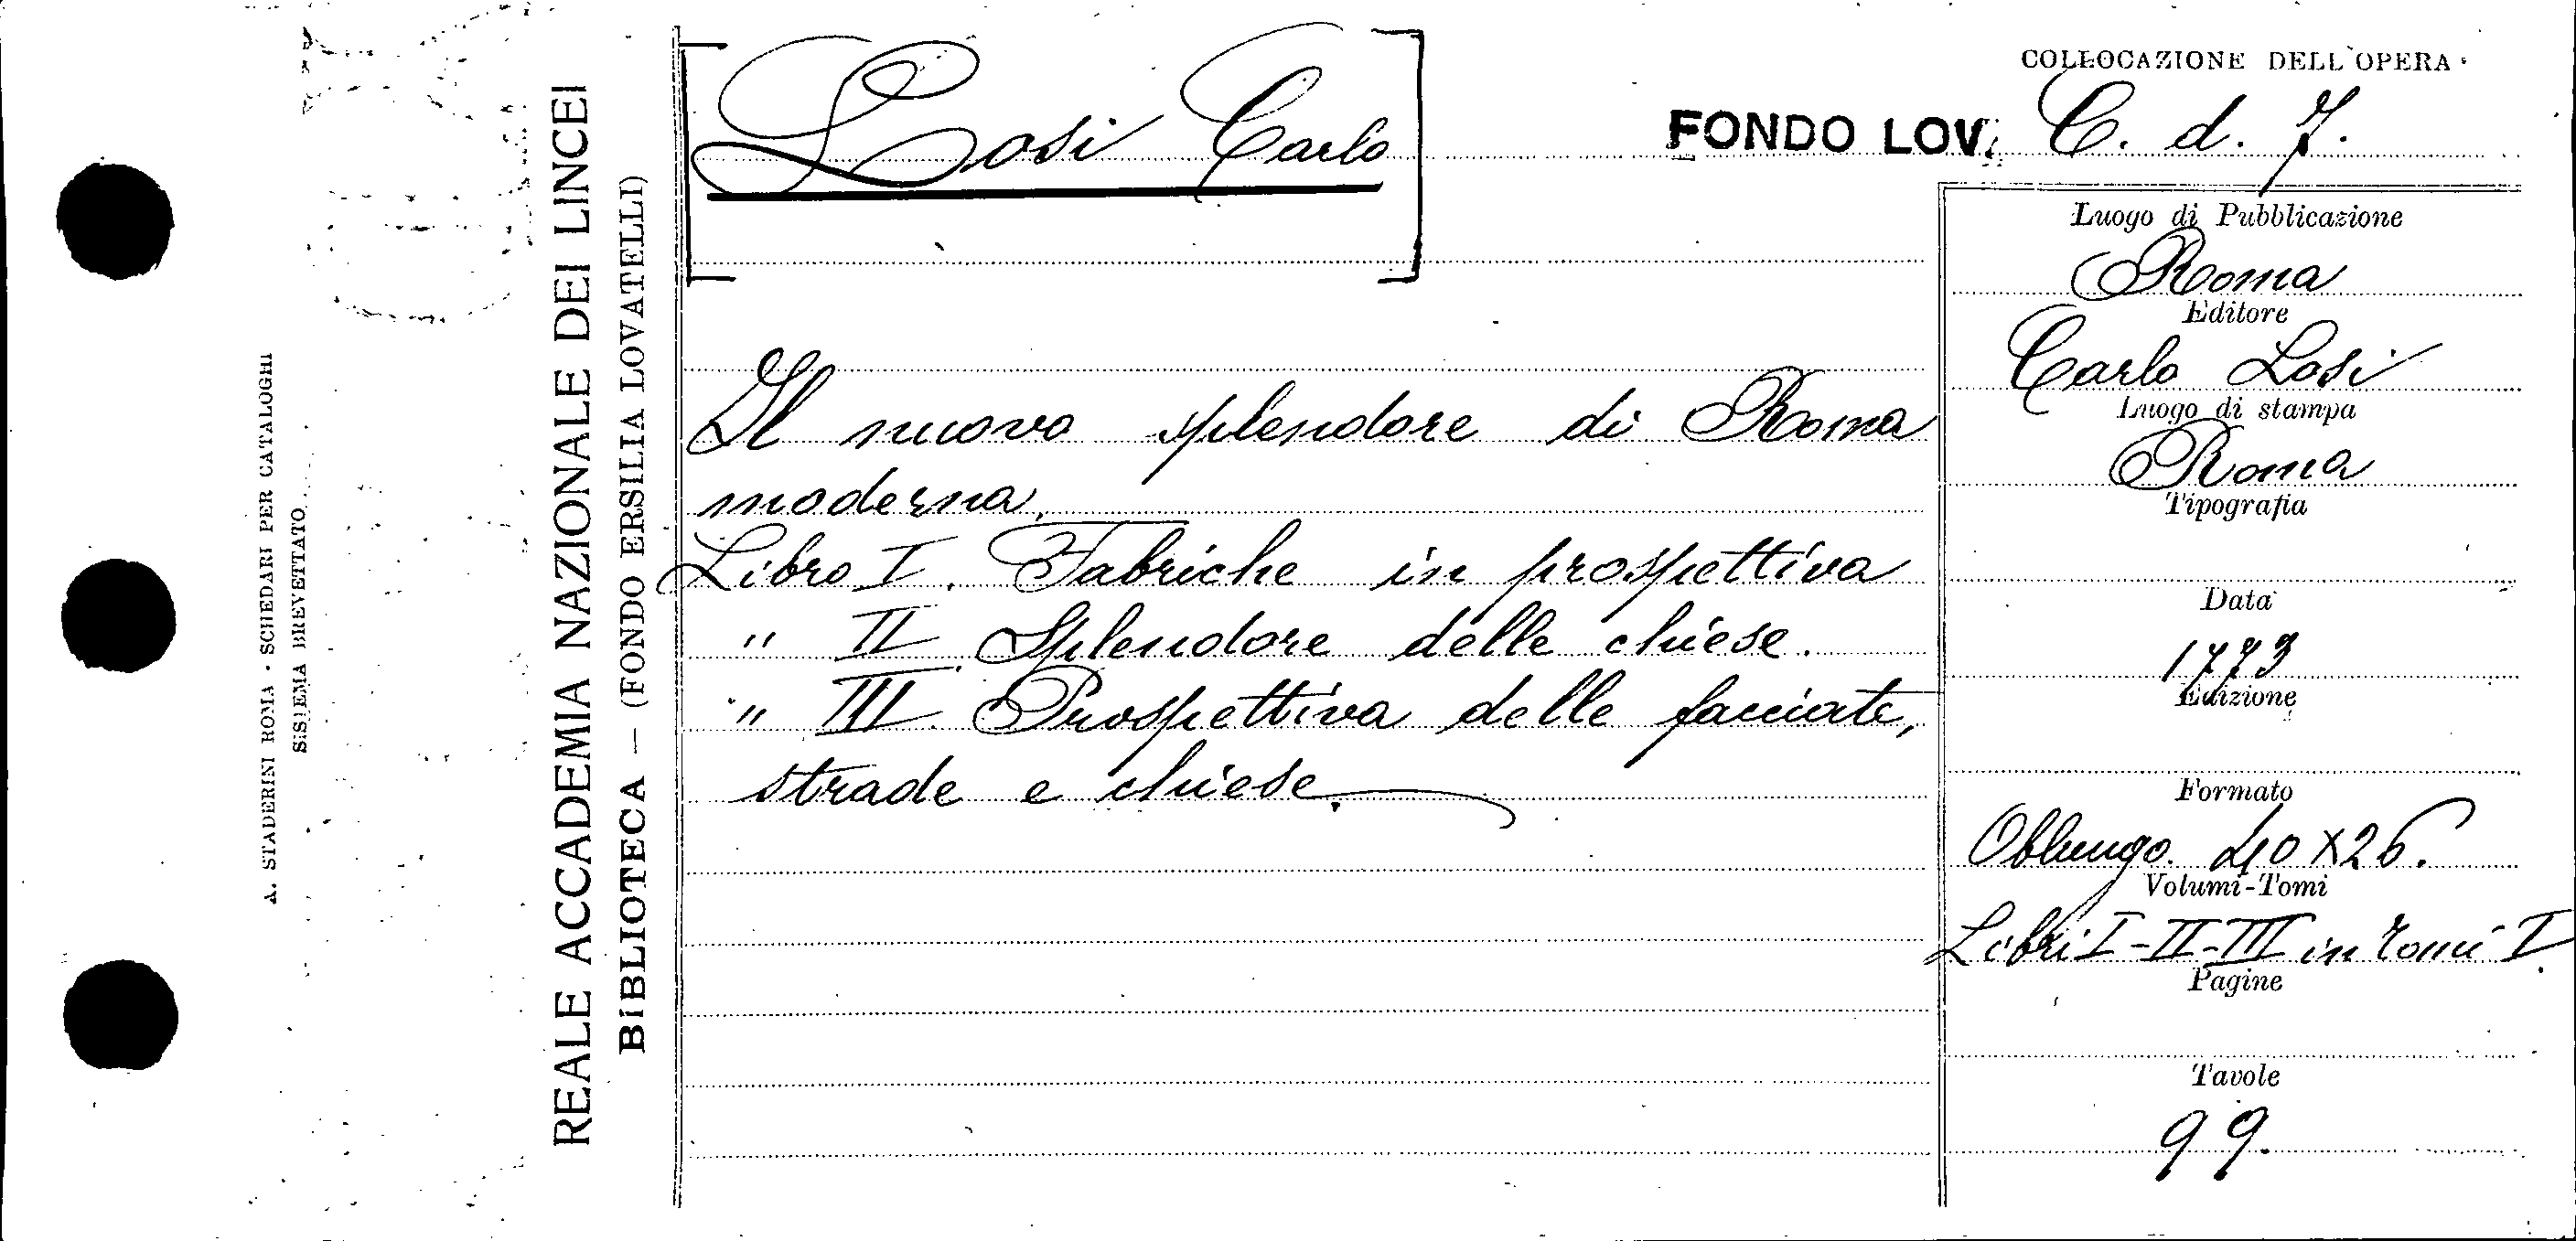 A. STADERINI ROMA - SCHEDARI PER CATALOGHI
SISTEMA BREVETTATO
REALE ACCADEMIA NAZIONALE DEI LINCEI
BIBLIOTECA — (FONDO ERSILIA LOVATELLI)
[Losi Carlo]
COLLOCAZIONE DELL'OPERA
FONDO LOV. C. d. 7.
Il nuovo splendore di Roma
moderna.
Libro I. Fabriche in prospettiva
" II. Splendore delle chiese.
" III. Prospettiva delle facciate,
strade e chiese.
Luogo di Pubblicazione
Roma
Editore
Carlo Losi
Luogo di stampa
Roma
Tipografia
Data
1773
Edizione
Formato
Oblungo. 40 X 26.
Volumi-Tomi
Libri I-II-III in Tomi I.
Pagine
Tavole
99.